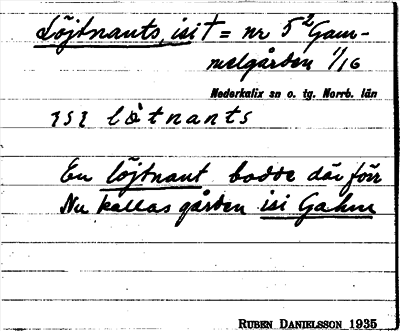 Löjtnants, isi † = nr 5² Gam-
melgården 1/16
Nederkalix sn o. tg. Norrb. län
ɪsɪ lòtnants
En löjtnant bodde där förr
Nu kallas gården isi Gahm
RUBEN DANIELSSON 1935